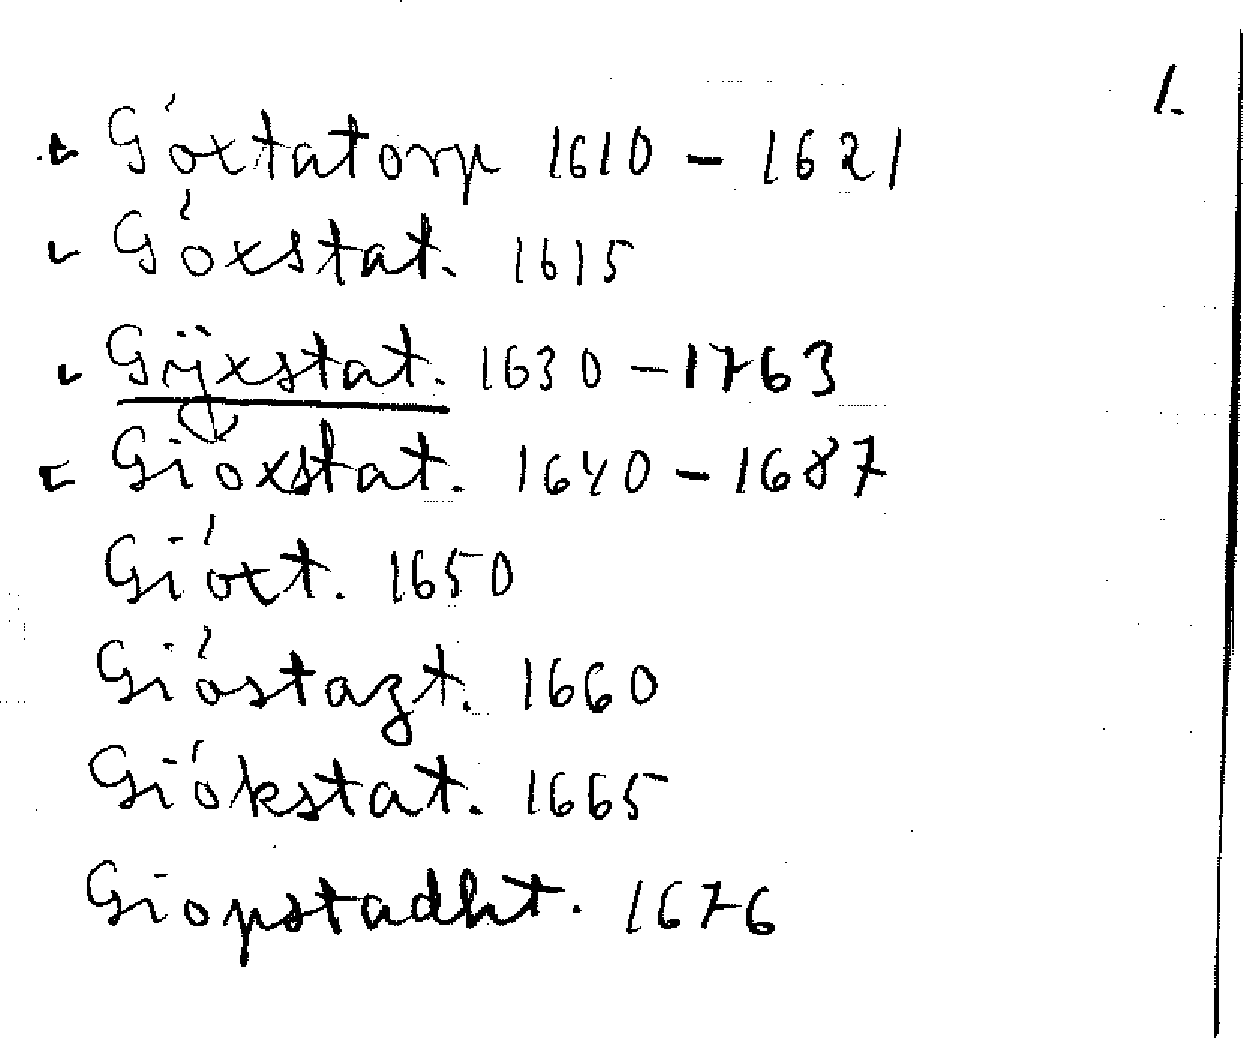 1.
Góxtatorp 1610 – 1621
Góxstat. 1615
Gÿxstat. 1630 – 1763
Gioxstat. 1640 – 1687
Gióxt. 1650
Gióstazt. 1660
Giókstat. 1665
Giopstadht. 1676